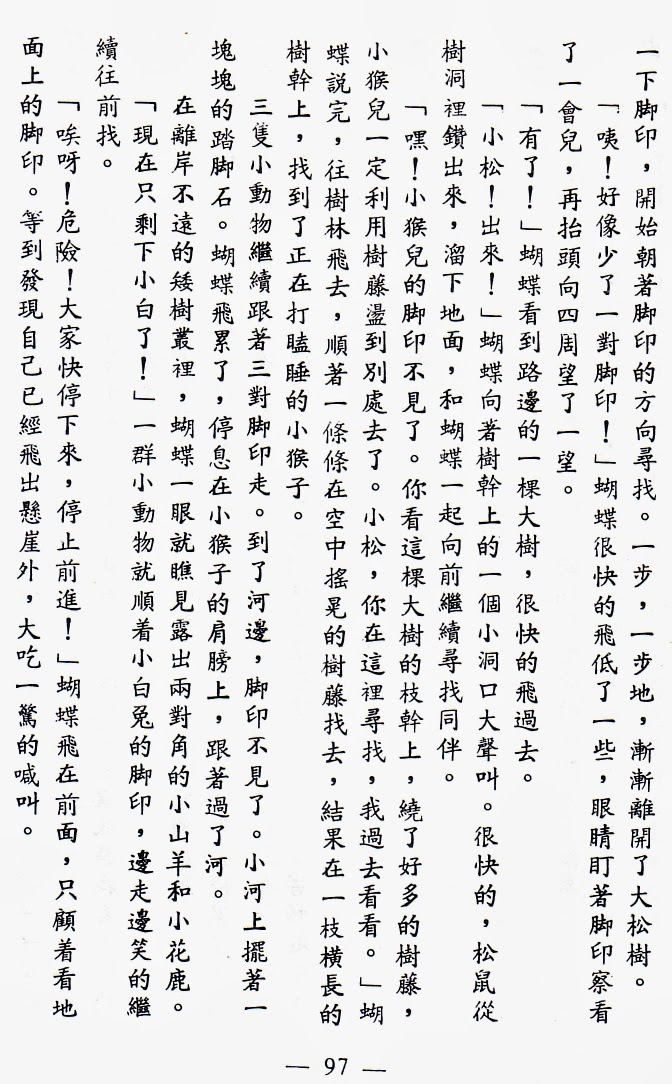 一下脚印，開始朝著脚印的方向尋找。一步，一步地，漸漸離開了大松樹。
「咦！好像少了一對脚印！」蝴蝶很快的飛低了一些，眼睛盯著脚印察看
了一會兒，再抬頭向四周望了一望。
「有了！」蝴蝶看到路邊的一棵大樹，很快的飛過去。
「小松！出來！」蝴蝶向著樹幹上的一個小洞口大聲叫。很快的，松鼠從
樹洞裡鑽出來，溜下地面，和蝴蝶一起向前繼續尋找同伴。
「嘿！小猴兒的脚印不見了。你看這棵大樹的枝幹上，繞了好多的樹藤，
小猴兒一定利用樹藤盪到別處去了。小松，你在這裡尋找，我過去看看。」蝴
蝶説完，往樹林飛去，順著一條條在空中搖晃的樹藤找去，結果在一枝橫長的
樹幹上，找到了正在打瞌睡的小猴子。
三隻小動物繼續跟著三對脚印走。到了河邊，脚印不見了。小河上擺著一
塊塊的踏脚石。蝴蝶飛累了，停息在小猴子的肩膀上，跟著過了河。
在離岸不遠的矮樹叢裡，蝴蝶一眼就瞧見露出兩對角的小山羊和小花鹿。
「現在只剩下小白了！」一群小動物就順着小白兔的脚印，邊走邊笑的繼
續往前找。
「唉呀！危險！大家快停下來，停止前進！」蝴蝶飛在前面，只顧着看地
面上的脚印。等到發現自己已經飛出懸崖外，大吃一驚的喊叫。
— 97 —